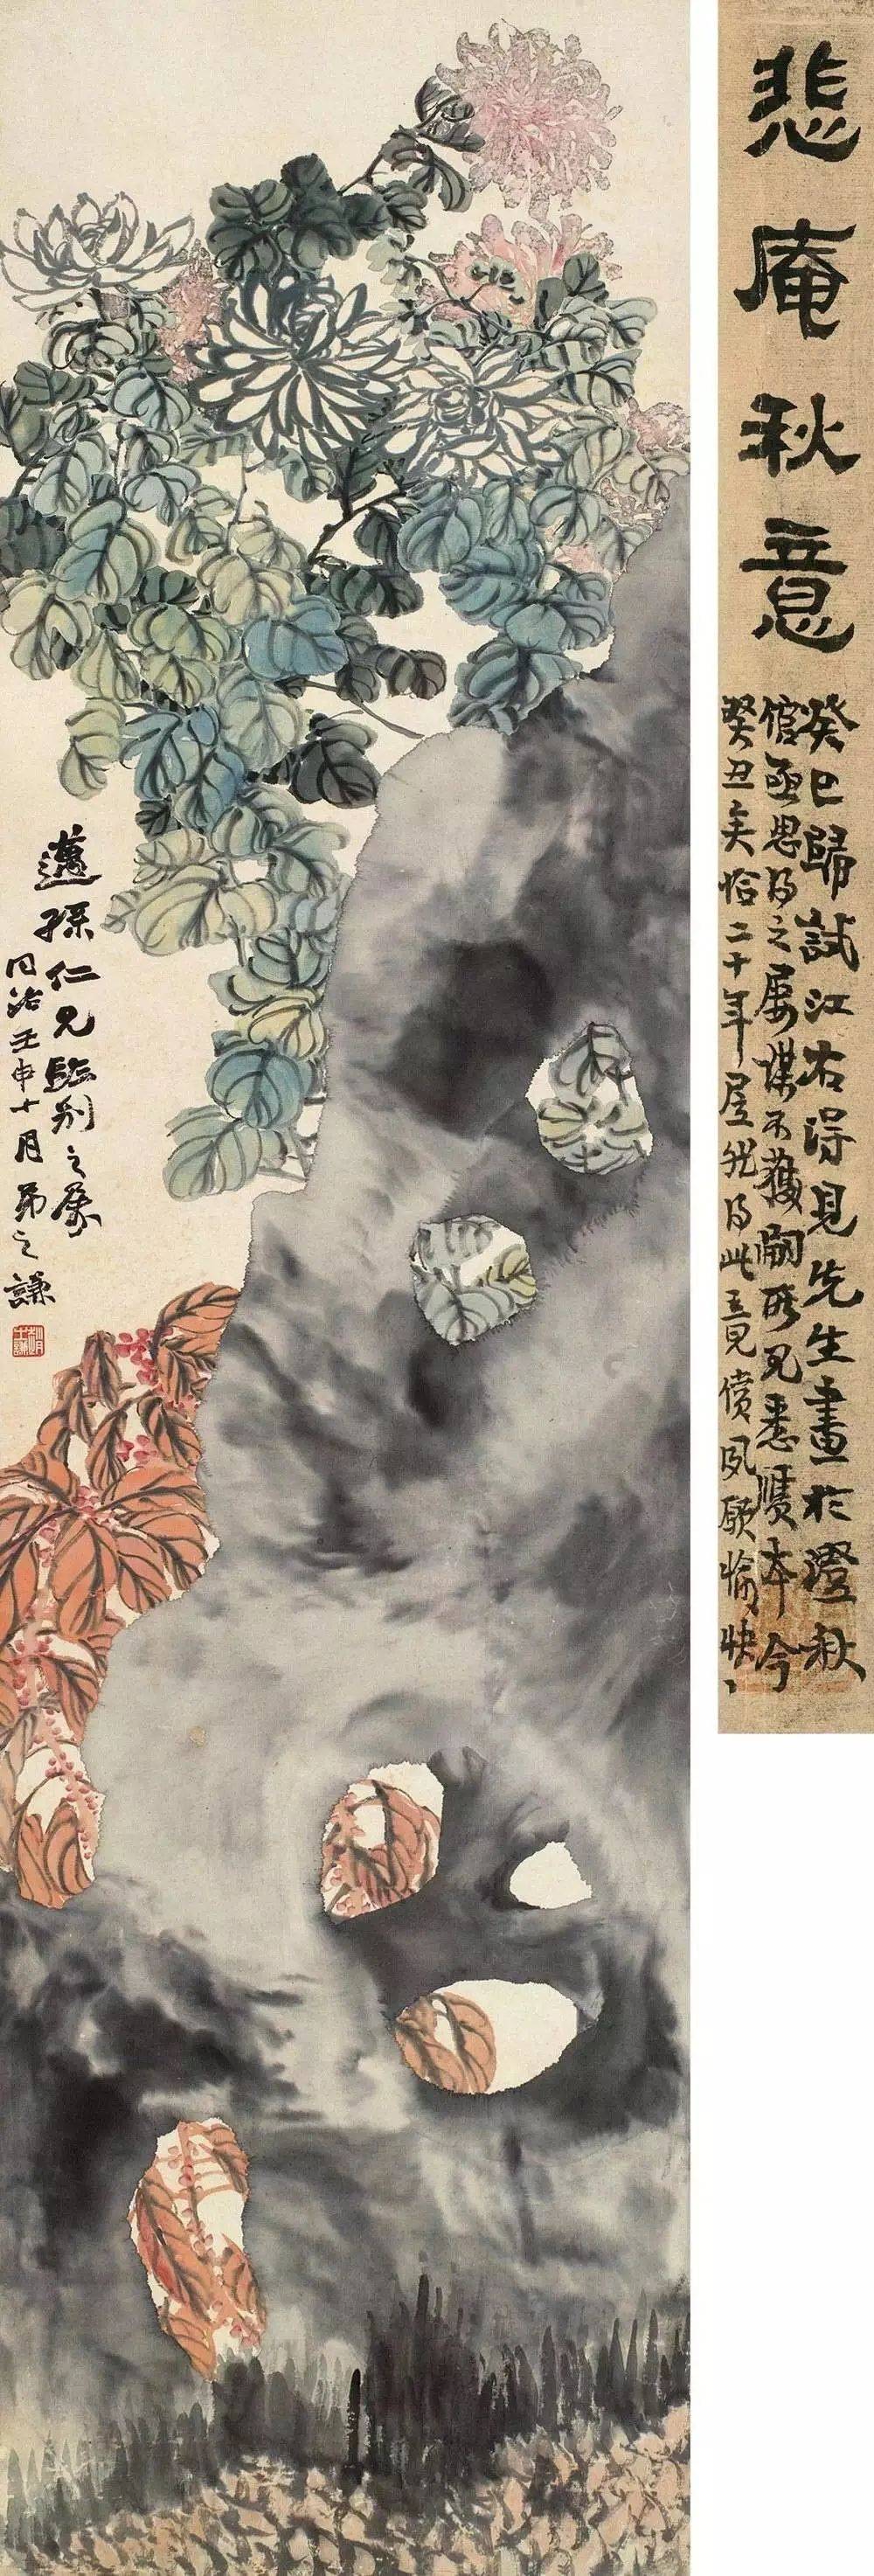 悲庵秋意
癸巳歸試江右得見先生畫於澄秋
倌亟思得之屢謀不獲嗣所見悉贋本今
癸丑矣恰二十年屋然得此意見償夙願愉快
邁孫仁兄臨別之屬
同治壬申十月弟之謙
趙之謙